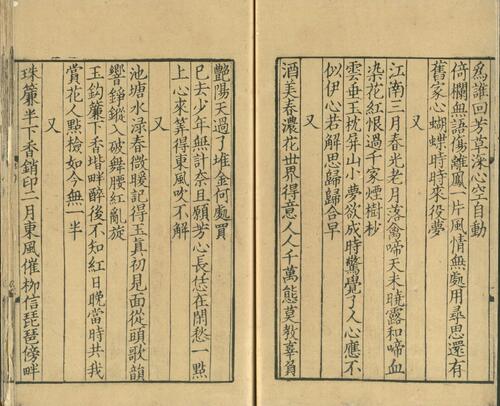 為誰回芳草深心空自動
倚欄無語傷離鳳一片風情無處用尋思還有
舊家心蝴蝶時時來役夢
又
江南三月春光老月落禽啼天未曉露和啼血
染花紅恨過千家煙樹杪
雲垂玉枕屏山小夢欲成時驚覺了人心應不
似伊心若解思歸歸合早
又
酒美春濃花世界得意人人千萬態莫教辜負
豔陽天過了堆金何處買
已去少年無計奈且願芳心長恁在閑愁一點
上心來算得東風吹不解
又
池塘水渌春微暖記得玉真初見面從頭歌韻
響錚鏦入破舞腰紅亂旋
玉鈎簾下香堦畔醉後不知紅日晚當時共我
賞花人點檢如今無一半
又
珠簾半下香銷印二月東風催栁信琵琶傍畔